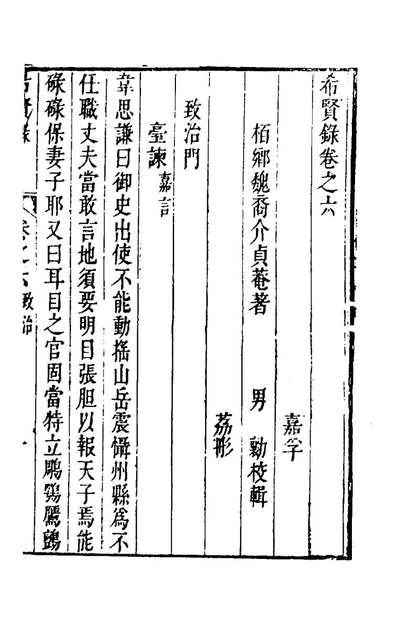 希賢錄卷之六
嘉孚
栢鄉魏裔介貞菴著 男 勷校輯
荔彤
致治門
臺諫嘉言
韋思謙曰御史出使不能動搖山岳震懾州縣為不
任職丈夫當敢言地須要明目張胆以報天子焉能
碌碌保妻子耶又曰耳目之官固當特立鵰鶚鷹鸇
卷之六 致治